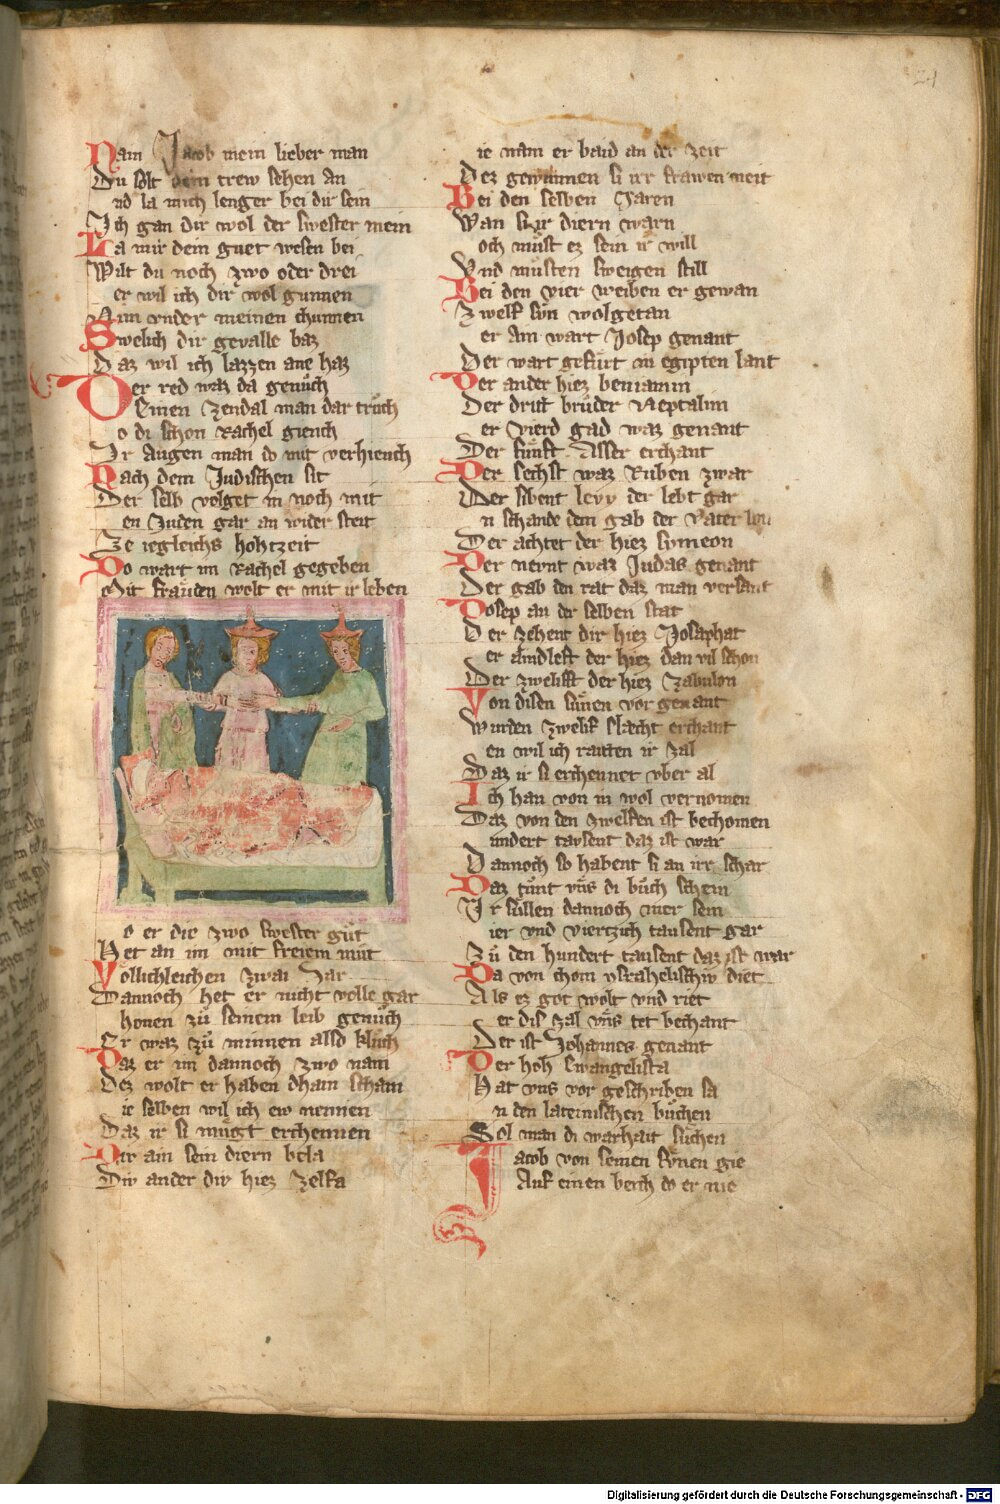 24
Nain Jacob mein lieber man
Du solt dein trew sehen an
nd la mich lenger bei dir sein
Ich gan dir wol der swester mein
La mir dein guet wesen bei
Wilt du noch zwo oder drei
er wil ich dir wol gunnen
Nim vnder meinen chunnen
Swelich dir gevalle baz
Daz wil ich lazzen ane haz
Der red waz da genuͦch
Einen zendal man dar truͦch
o di schon Rachel giench
Ir augen man do mit verhiench
Nach dem Judischen sit
Der selb volget in noch mit
en Juden gar an wider streit
Ze iegleichs hohtzeit
Do wart im Rachel gegeben
Mit frauden wolt er mit ir leben
o er die zwo swester guͦt
Het an im mit freiem muͦt
Vollichleichen zwai Jar
Dannoch het er nicht volle gar
honen zuͦ seinem leib genuͦch
Er waz zuͦ minnen also kluͦch
Daz er im dannoch zwo nam
Dez wolt er haben dhain scham
ie selben wil ich ew nennen
Daz ir si muͤgt erchennen
Dir ain sein diern bela
Div ander div hiez Zelfa
ie nam er baid an der zeit
Dez gewunnen si irr frawen neit
Bei den selben Jaren
Wan si ir diern warn
och muͤst ez sein ir will
Vnd muͤsten sweigen still
Bei den vier weiben er gewan
Zwelf suͤn wolgetan
er ain wart Josep genant
Der wart gefuͤrt in egipten lant
Der ander hiez beniamin
Der dritt bruͤder Neptalim
er vierd gad waz genant
Der fuͤnft Asser erchant
Der sechst waz Ruben zwar
Der sibent levy der lebt gar
n schande dem gab der vater lon
Der achtet der hiez symeon
Der nevnt waz Judas genant
Der gab den rat daz man versant
Josep an der selben stat
Der zehent dir hiez Josaphat
er aindleft der hiez dan vil schon
Der zwelifft der hiez Zabulon
Von disen suͤnen vor genant
Wurden zwelif slaecht erchant
en wil ich raitten ir zal
Daz ir si erchennet vber al
Ich han von in wol vernomen
Daz von den zwelfen ist bechomen
undert tavsent daz ist war
Dannoch so habent si an irr schar
Daz tuͦnt vns di buͦch schein
Ir suͤllen dannoch mer sein
ier vnd viertzich tausent gar
Zuͦ den hundert tausent daz ist war
Da von chom ysrahelischiv diet
Als ez got wolt vnd riet
er dis zal vns tet bechant
Der ist Johannes genant
Der hoh Ewangelista
Hat vns vor geschriben sa
n den lateinischen buͤchen
Sol man di warhait suͤchen
Jacob von seinen suͤnen gie
Auf einen berch do er nie
Digitalisierung gefördert durch die Deutsche Forschungsgemeinschaft - DFG